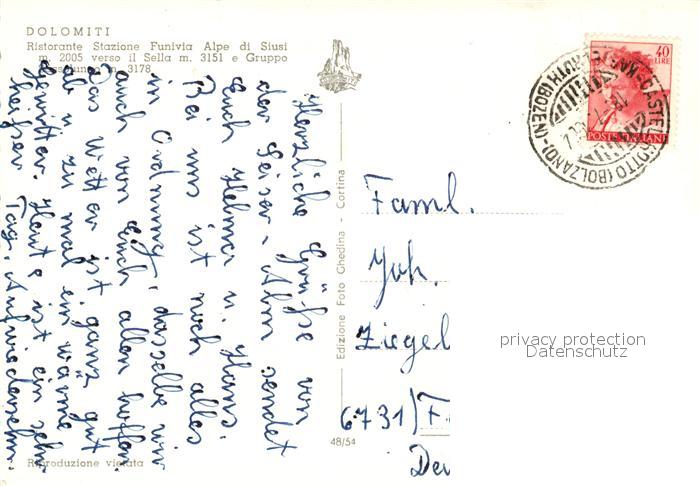 DOLOMITI
Ristorante Stazione Funivia Alpe di Siusi
m. 2005 verso il Sella m. 3151 e Gruppo
m. 3178
Herzliche Grüße von
der Seiser-Alm sendet
Euch Helma u. Hans.
Bei uns ist noch alles
in Ordnung, dasselbe wir
auch von Euch allen hoffen.
Das Wetter ist ganz gut
ab u zu mal ein wärme
Gewitter. Heute ist ein sehr
heißer Tag. Aufwiedersehn.
Riproduzione vietata
Edizione Foto Ghedina - Cortina
48/54
40
LIRE
POSTE ITALIANE
CASTELROTTO (BOLZANO)
(BOZEN)
Faml.
Joh.
Ziegel
6731)
privacy protection
Datenschutz